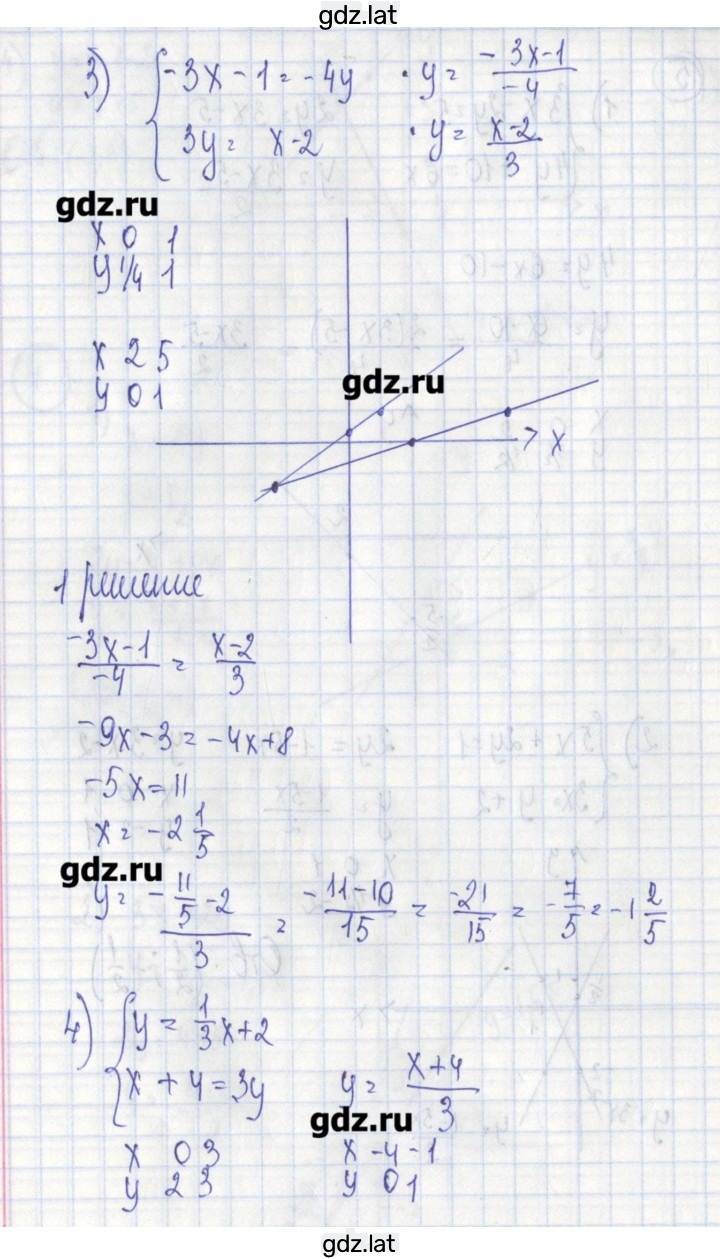 gdz.lat
3) { -3x - 1 = -4y · y = (-3x-1)/(-4)
3y = x-2 · y = (x-2)/3
gdz.ru
x 0 1
y 1/4 1
x 2 5
y 0 1
gdz.ru
x
1 решение
(-3x-1)/(-4) = (x-2)/3
-9x - 3 = -4x + 8
-5x = 11
x = -2 1/5
gdz.ru
y = (-11/5 - 2)/3 = (-11-10)/15 = -21/15 = -7/5 = -1 2/5
4) { y = 1/3 x + 2
x + 4 = 3y y = (x+4)/3
gdz.ru
x 0 3 x -4 -1
y 2 3 y 0 1
gdz.lat